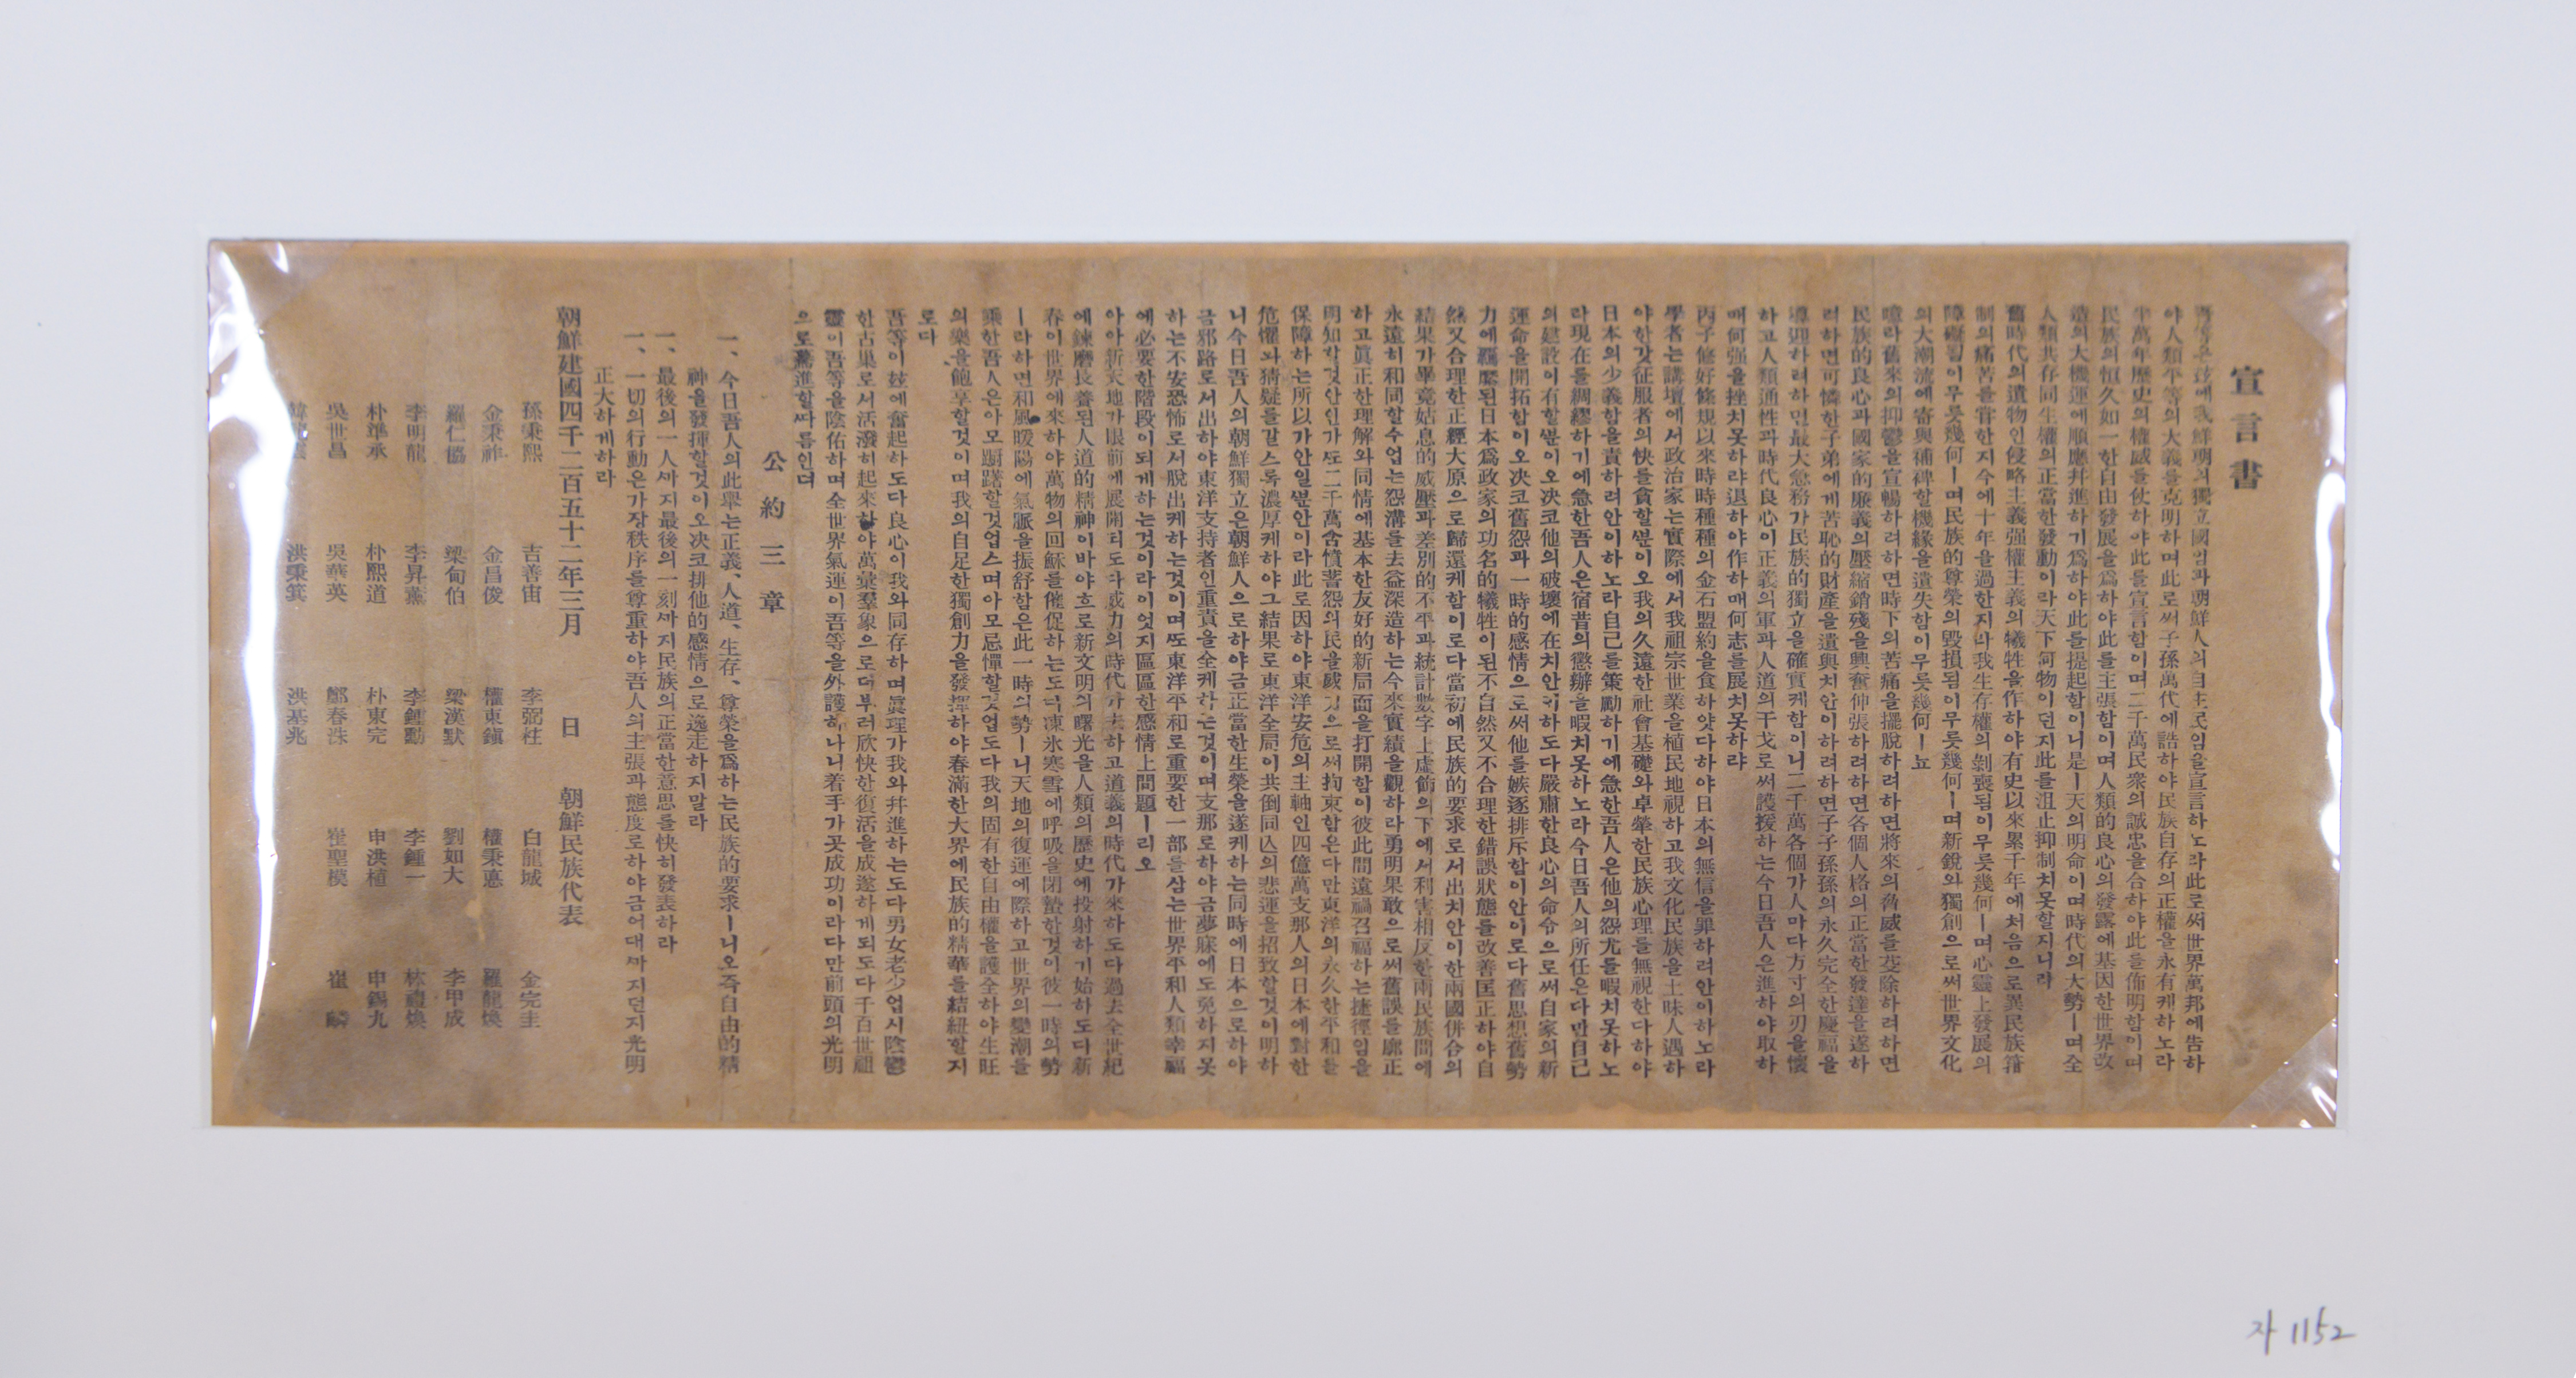 宣言書
吾等은玆에我鮮朝의獨立國임과朝鮮人의自主民임을宣言하노라此로써世界萬邦에告하
야人類平等의大義를克明하며此로써子孫萬代에誥하야民族自存의正權을永有케하노라
半萬年歷史의權威를仗하야此를宣言함이며二千萬民衆의誠忠을合하야此를佈明함이며
民族의恒久如一한自由發展을爲하야此를主張함이며人類的良心의發露에基因한世界改
造의大機運에順應幷進하기爲하야此를提起함이니是ㅣ天의明命이며時代의大勢ㅣ며全
人類共存同生權의正當한發動이라天下何物이던지此를沮止抑制치못할지니라
舊時代의遺物인侵略主義强權主義의犧牲을作하야有史以來累千年에처음으로異民族箝
制의痛苦를嘗한지今에十年을過한지라我生存權의剝喪됨이무릇幾何ㅣ며心靈上發展의
障礙됨이무릇幾何ㅣ며民族的尊榮의毁損됨이무릇幾何ㅣ며新銳와獨創으로써世界文化
의大潮流에寄與補裨할機緣을遺失함이무릇幾何ㅣ뇨
噫라舊來의抑鬱을宣暢하려하면時下의苦痛을擺脫하려하면將來의脅威를芟除하려하면
民族的良心과國家的廉義의壓縮銷殘을興奮伸張하려하면各個人格의正當한發達을遂하
려하면可憐한子弟에게苦恥的財產을遺與치안이하려하면子子孫孫의永久完全한慶福을
導迎하려하면最大急務가民族的獨立을確實케함이니二千萬各個가人마다方寸의刃을懷
하고人類通性과時代良心이正義의軍과人道의干戈로써護援하는今日吾人은進하야取하
매何强을挫치못하랴退하야作하매何志를展치못하랴
丙子修好條規以來時時種種의金石盟約을食하얏다하야日本의無信을罪하려안이하노라
學者는講壇에서政治家는實際에서我祖宗世業을植民地視하고我文化民族을土昧人遇하
야한갓征服者의快를貪할뿐이오我의久遠한社會基礎와卓犖한民族心理를無視한다하야
日本의少義함을責하려안이하노라自己를策勵하기에急한吾人은他의怨尤를暇치못하노
라現在를綢繆하기에急한吾人은宿昔의懲辦을暇치못하노라今日吾人의所任은다만自己
의建設이有할뿐이오決코他의破壞에在치안이하도다嚴肅한良心의命令으로써自家의新
運命을開拓함이오決코舊怨과一時的感情으로써他를嫉逐排斥함이안이로다舊思想舊勢
力에羈縻된日本爲政家의功名的犧牲이된不自然又不合理한錯誤狀態를改善匡正하야自
然又合理한正經大原으로歸還케함이로다當初에民族的要求로서出치안이한兩國併合의
結果가畢竟姑息的威壓과差別的不平과統計數字上虛飾의下에서利害相反한兩民族間에
永遠히和同할수업는怨溝를去益深造하는今來實績을觀하라勇明果敢으로써舊誤를廓正
하고眞正한理解와同情에基本한友好的新局面을打開함이彼此間遠禍召福하는捷徑임을
明知할것안인가또二千萬含憤蓄怨의民을威力으로써拘束함은다만東洋의永久한平和를
保障하는所以가안일뿐안이라此로因하야東洋安危의主軸인四億萬支那人의日本에對한
危懼와猜疑를갈스록濃厚케하야그結果로東洋全局이共倒同亡의悲運을招致할것이明하
니今日吾人의朝鮮獨立은朝鮮人으로하야금正當한生榮을遂케하는同時에日本으로하야
금邪路로서出하야東洋支持者인重責을全케하는것이며支那로하야금夢寐에도免하지못
하는不安恐怖로서脫出케하는것이며또東洋平和로重要한一部를삼는世界平和人類幸福
에必要한階段이되게하는것이라이엇지區區한感情上問題ㅣ리오
아아新天地가眼前에展開되도다威力의時代가去하고道義의時代가來하도다過去全世紀
에鍊磨長養된人道的精神이바야흐로新文明의曙光을人類의歷史에投射하기始하도다新
春이世界에來하야萬物의回穌를催促하는도다凍氷寒雪에呼吸을閉蟄한것이彼一時의勢
ㅣ라하면和風暖陽에氣脈을振舒함은此一時의勢ㅣ니天地의復運에際하고世界의變潮를
乘한吾人은아모躕躇할것업스며아모忌憚할것업도다我의固有한自由權을護全하야生旺
의樂을飽享할것이며我의自足한獨創力을發揮하야春滿한大界에民族的精華를結紐할지
로다
吾等이玆에奮起하도다良心이我와同存하며眞理가我와幷進하는도다男女老少업시陰鬱
한古巢로서活潑히起來하야萬彙羣象으로더부러欣快한復活을成遂하게되도다千百世祖
靈이吾等을陰佑하며全世界氣運이吾等을外護하나니着手가곳成功이라다만前頭의光明
으로驀進할따름인뎌
公約三章
一、今日吾人의此擧는正義、人道、生存、尊榮을爲하는民族的要求ㅣ니오즉自由的精
神을發揮할것이오決코排他的感情으로逸走하지말라
一、最後의一人까지最後의一刻까지民族의正當한意思를快히發表하라
一、一切의行動은가장秩序를尊重하야吾人의主張과態度로하야금어대까지던지光明
正大하게하라
朝鮮建國四千二百五十二年三月 日 朝鮮民族代表
孫秉熙 吉善宙 李弼柱 白龍城 金完圭
金秉祚 金昌俊 權東鎭 權秉悳 羅龍煥
羅仁協 梁甸伯 梁漢默 劉如大 李甲成
李明龍 李昇薰 李鍾勳 李鍾一 林禮煥
朴準承 朴熙道 朴東完 申洪植 申錫九
吳世昌 吳華英 鄭春洙 崔聖模 崔麟
韓龍雲 洪秉箕 洪基兆
자 1152